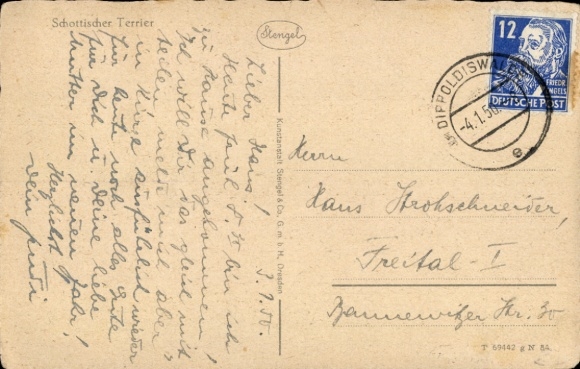 Schottischer Terrier
Stengel
3. I. 50.
Lieber Hans!
Heute früh bin ich
zu Hause angekommen.
Ich will Dir das gleich mit-
teilen, melde mich aber
in Kürze ausführlich wieder
Für heute noch alles Gute
für Dich u. Deine liebe
Mutter im neuen Jahr!
Herzlichst
Dein
Kunstanstalt Stengel & Co., G. m. b. H., Dresden
12
FRIEDR
ENGELS
DEUTSCHE POST
DIPPOLDISWALDE
-4.1.50
e
Herrn
Hans Strohschneider,
Freital - I
Bannewitzer Str. 30
T 69442 g N 84